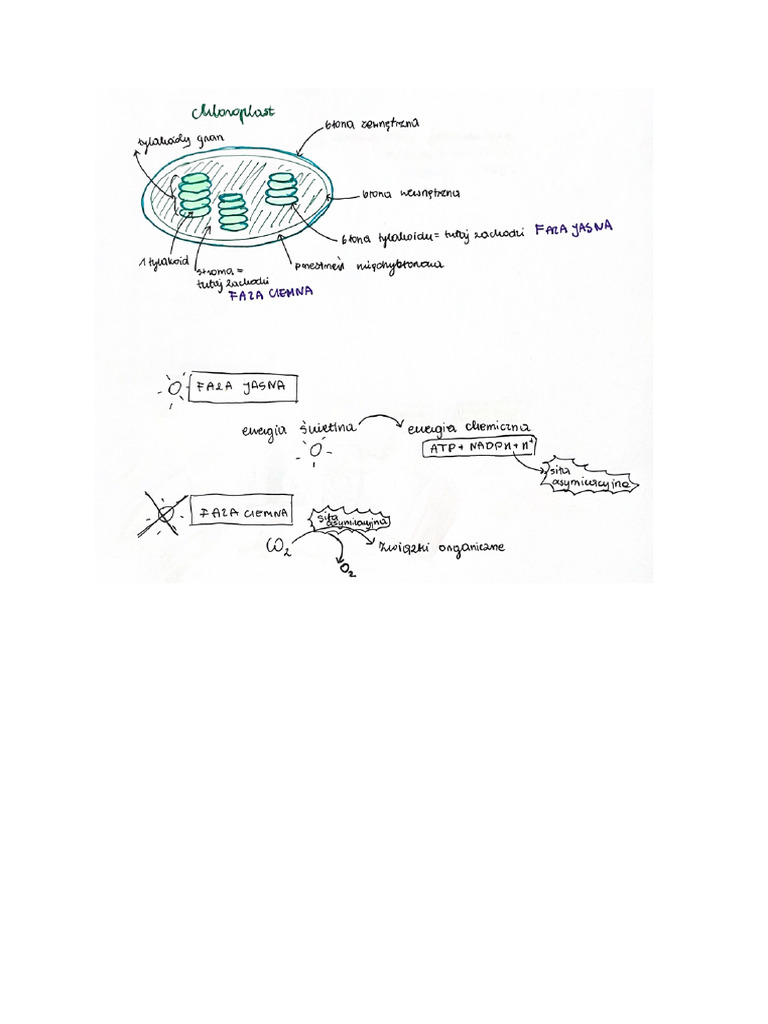 chloroplast
tylakoidy gran
błona zewnętrzna
błona wewnętrzna
błona tylakoidu = tutaj zachodzi FAZA JASNA
1 tylakoid
stroma =
tutaj zachodzi
FAZA CIEMNA
przestrzeń międzybłonowa
FAZA JASNA
energia świetlna
energia chemiczna
ATP + NADPH + H⁺
siła
asymilacyjna
FAZA CIEMNA
siła
asymilacyjna
CO₂
związki organiczne
O₂